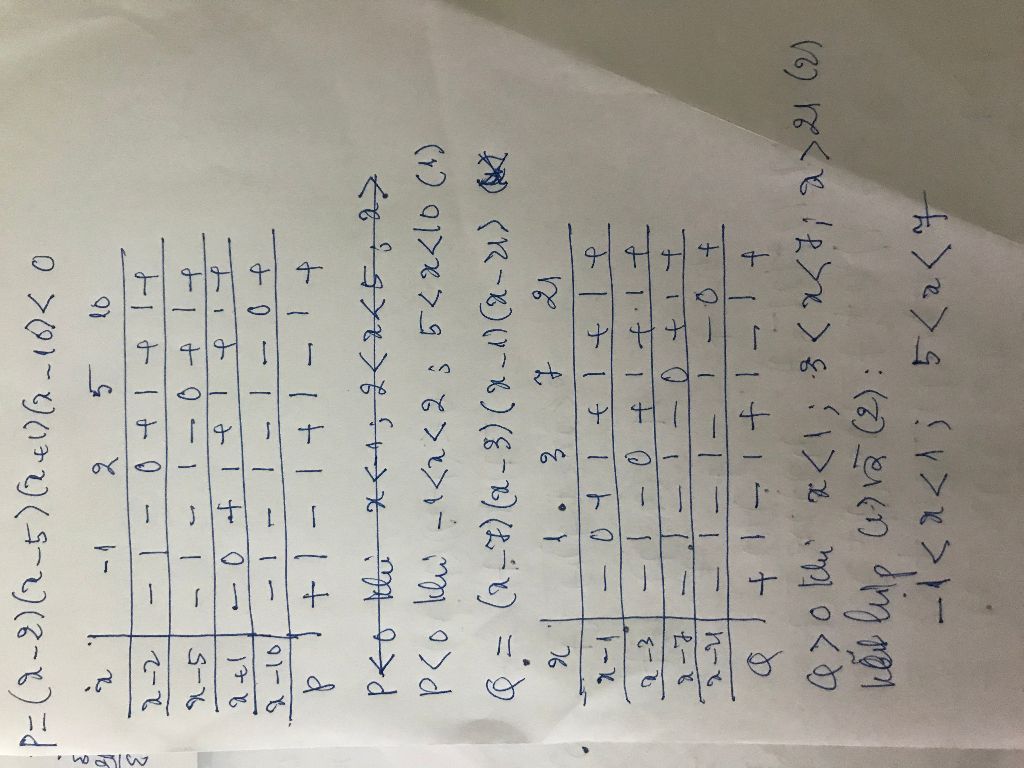 P = (x-2)(x-5)(x+1)(x-10) < 0
x -1 2 5 10
x-2 - | - 0 + | + | +
x-5 - | - | - 0 + | +
x+1 - 0 + | + | + | +
x-10 - | - | - | - 0 +
P + | - | + | - | +
P<0 khi x<-1; 2<x<5; x>
P<0 khi -1<x<2; 5<x<10 (1)
Q = (x-7)(x-3)(x-1)(x-21)
x 1 3 7 21
x-1 - 0 + | + | + | +
x-3 - | - 0 + | + | +
x-7 - | - | - 0 + | +
x-21 - | - | - | - 0 +
Q + | - | + | - | +
Q>0 khi x<1; 3<x<7; x>21 (2)
kết hợp (1) và (2):
-1<x<1; 5<x<7